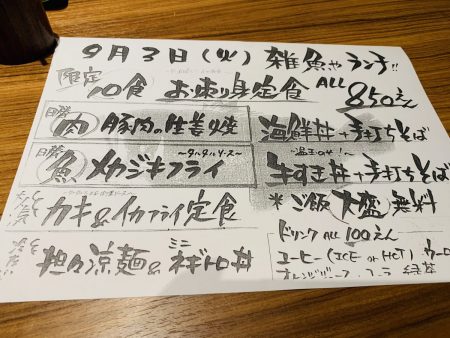 9月3日(火) 雑魚やランチ!!
限定10食 お刺身定食 ALL 850えん
日替 肉 豚肉の生姜焼
〜タルタルソース〜
日替 魚 メカジキフライ
カキ&イカフライ定食
担々涼麺&ミニネギトロ丼
海鮮丼+手打ちそば
〜温玉のせ!〜
牛すき丼+手打ちそば
*ご飯大盛無料
ドリンク ALL 100えん
コーヒー(ICE or HOT) ウーロン
オレンジジュース コーラ 緑茶